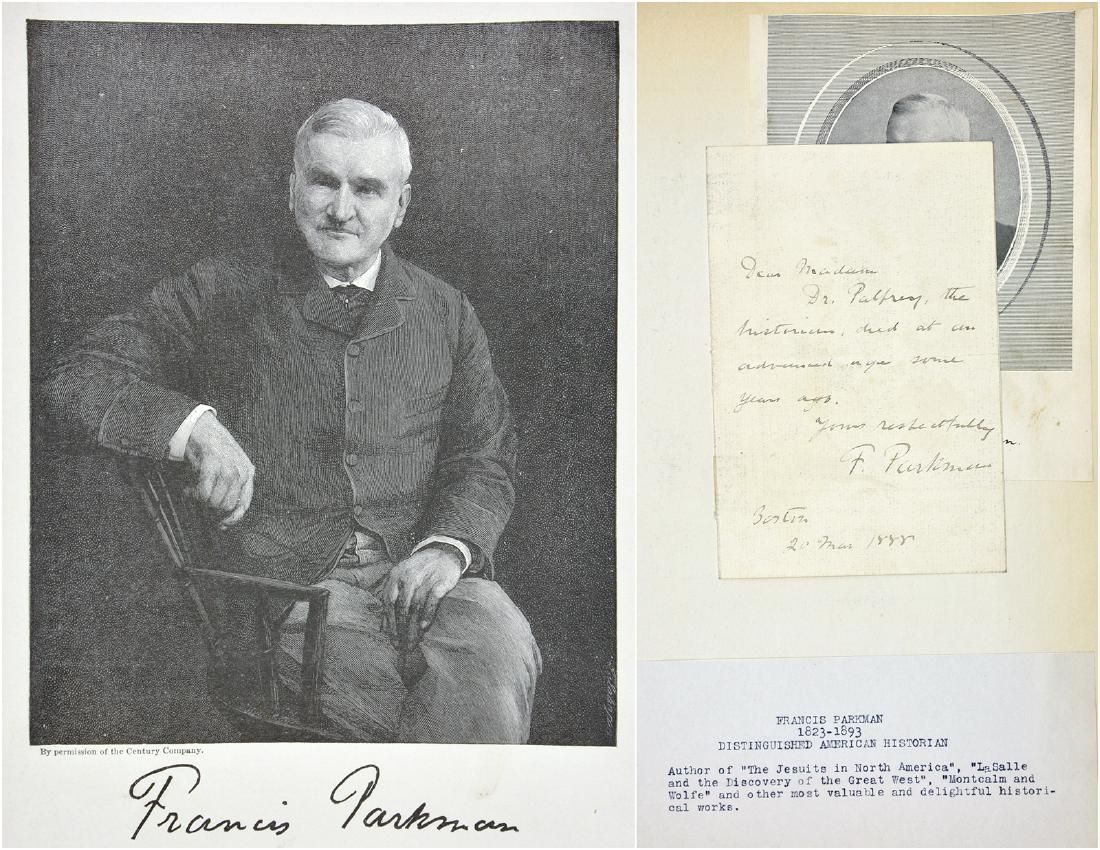 By permission of the Century Company.
Francis Parkman
Dear Madam
Dr. Palfrey, the
historian, died at an
advanced age some
years ago.
Yours respectfully
F. Parkman
n.
Boston
20 Mar 1888
FRANCIS PARKMAN
1823-1893
DISTINGUISHED AMERICAN HISTORIAN
Author of "The Jesuits in North America", "LaSalle
and the Discovery of the Great West", "Montcalm and
Wolfe" and other most valuable and delightful histori-
cal works.